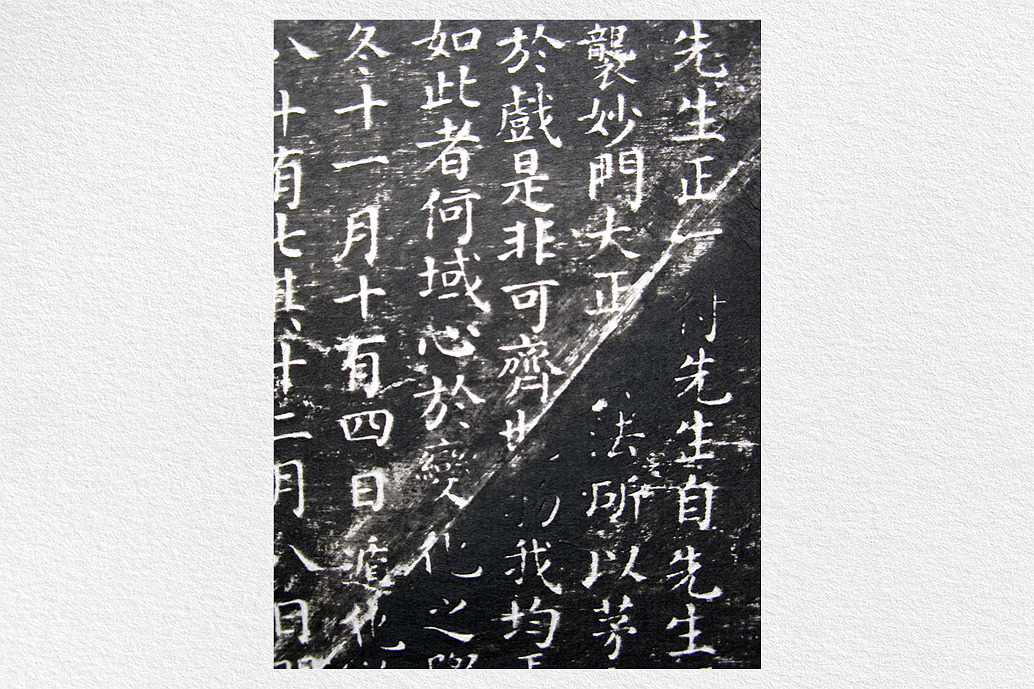 先生正一付先生自先生
襲妙門大正法所以茅
於戲是非可齊也物我均
如此者何域心於變化之
冬十一月十有四日遁化
八十有七其十二月八日